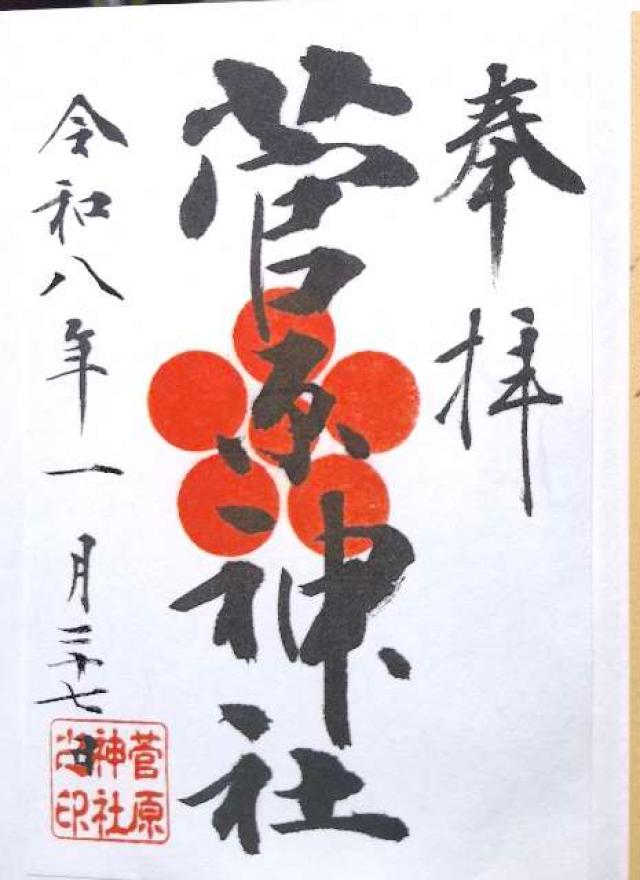 奉拝
菅原神社
令和八年一月二十七日
菅原
神社
之印